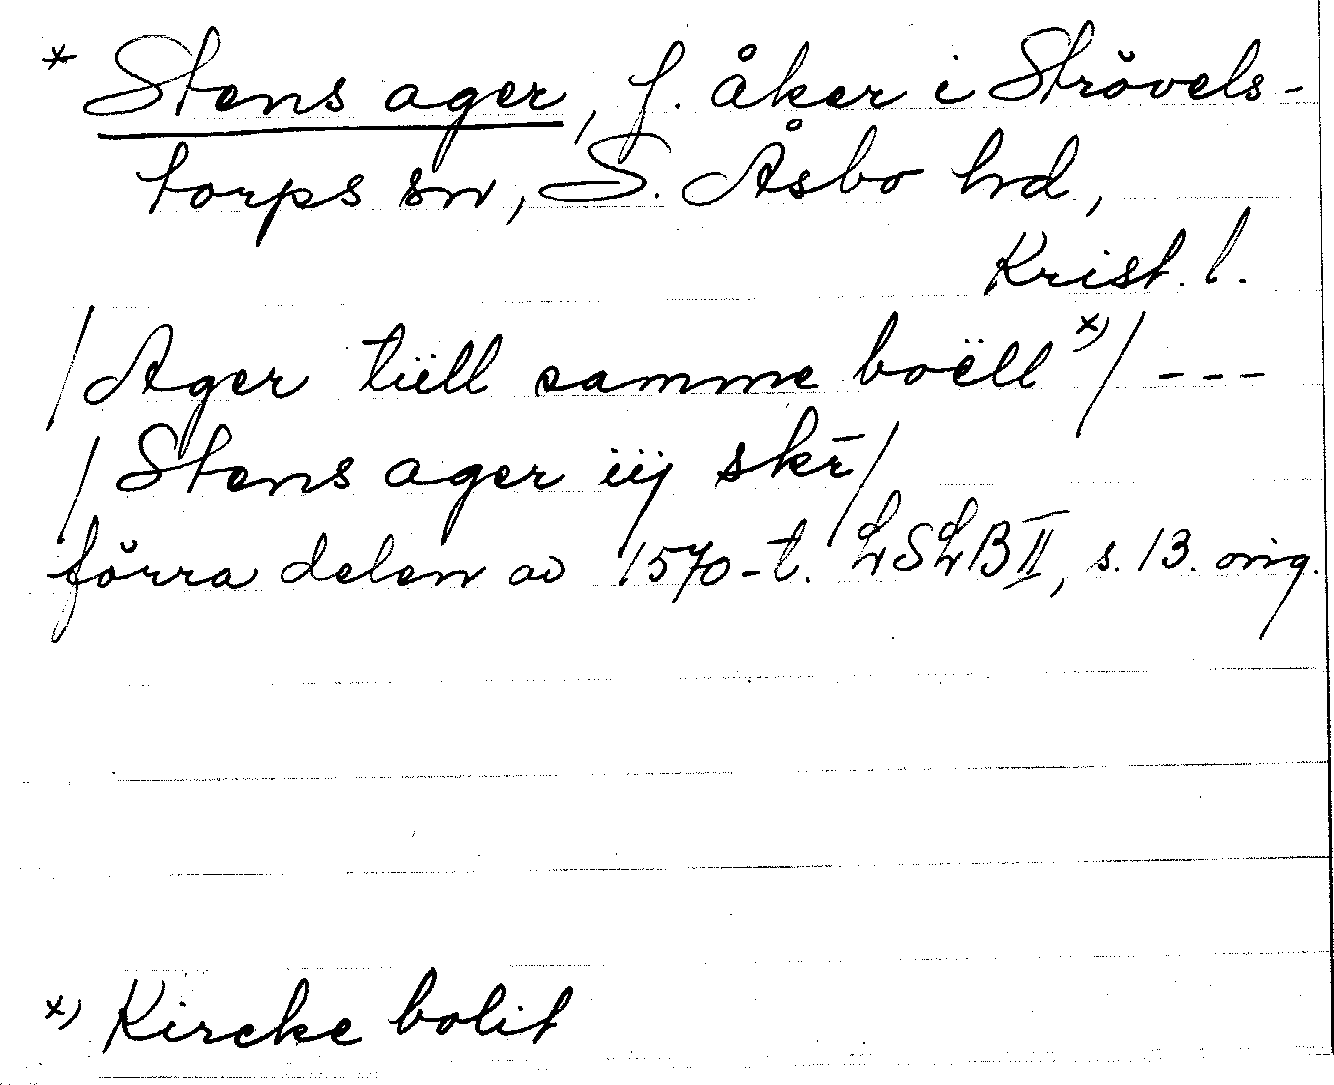 * Stens ager, f. åker i Strövels-
torps sn, S. Åsbo hd,
Krist. l.
/Ager tüll samme boëll x)/ ---
/Stens ager iij skr̄/
förra delen av 1570-t. LSLB II, s. 13. orig.
x) Kircke bolit